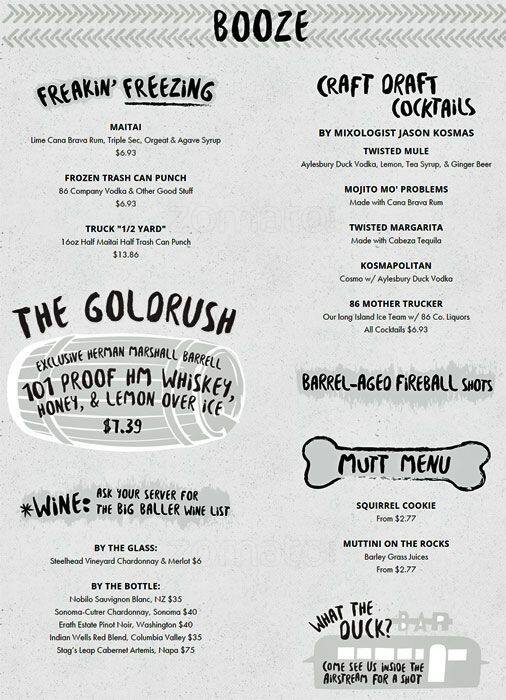 BOOZE
FREAKIN' FREEZING
MAITAI
Lime Cana Brava Rum, Triple Sec, Orgeat & Agave Syrup
$6.93
FROZEN TRASH CAN PUNCH
86 Company Vodka & Other Good Stuff
$6.93
TRUCK "1/2 YARD"
16oz Half Maitai Half Trash Can Punch
$13.86
THE GOLDRUSH
EXCLUSIVE HERMAN MARSHALL BARRELL
101 PROOF HM WHISKEY,
HONEY, & LEMON OVER ICE
$7.39
*WINE: ASK YOUR SERVER FOR
THE BIG BALLER WINE LIST
BY THE GLASS:
Steelhead Vineyard Chardonnay & Merlot $6
BY THE BOTTLE:
Nobilo Sauvignon Blanc, NZ $35
Sonoma-Cutrer Chardonnay, Sonoma $40
Erath Estate Pinot Noir, Washington $40
Indian Wells Red Blend, Columbia Valley $35
Stag's Leap Cabernet Artemis, Napa $75
CRAFT DRAFT
COCKTAILS
BY MIXOLOGIST JASON KOSMAS
TWISTED MULE
Aylesbury Duck Vodka, Lemon, Tea Syrup, & Ginger Beer
MOJITO MO' PROBLEMS
Made with Cana Brava Rum
TWISTED MARGARITA
Made with Cabeza Tequila
KOSMAPOLITAN
Cosmo w/ Aylesbury Duck Vodka
86 MOTHER TRUCKER
Our long Island Ice Team w/ 86 Co. Liquors
All Cocktails $6.93
BARREL-AGED FIREBALL SHOTS
MUTT MENU
SQUIRREL COOKIE
From $2.77
MUTTINI ON THE ROCKS
Barley Grass Juices
From $2.77
WHAT THE
DUCK?
BAR
COME SEE US INSIDE THE
AIRSTREAM FOR A SHOT
zomato
zomato